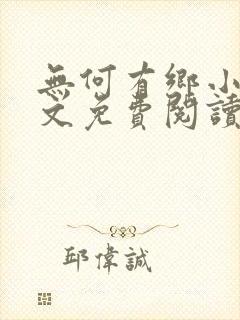 無何有鄉小
文免費閱讀
邱偉誠